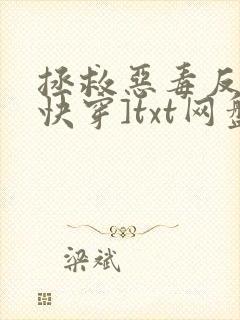 拯救恶毒反
快穿]txt网盘
梁斌